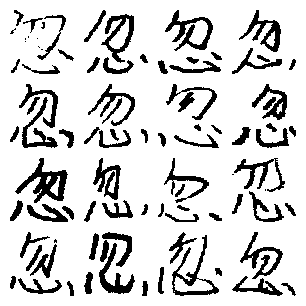 忽忽忽忽
忽忽忽忽
忽忽忽忽
忽忽忽忽